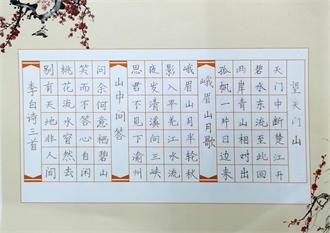 望天门山
天门中断楚江开
碧水东流至此回
两岸青山相对出
孤帆一片日边来
峨眉山月歌
峨眉山月半轮秋
影入平羌江水流
夜发清溪向三峡
思君不见下渝州
山中问答
问余何意栖碧山
笑而不答心自闲
桃花流水窅然去
别有天地非人间
李白诗三首